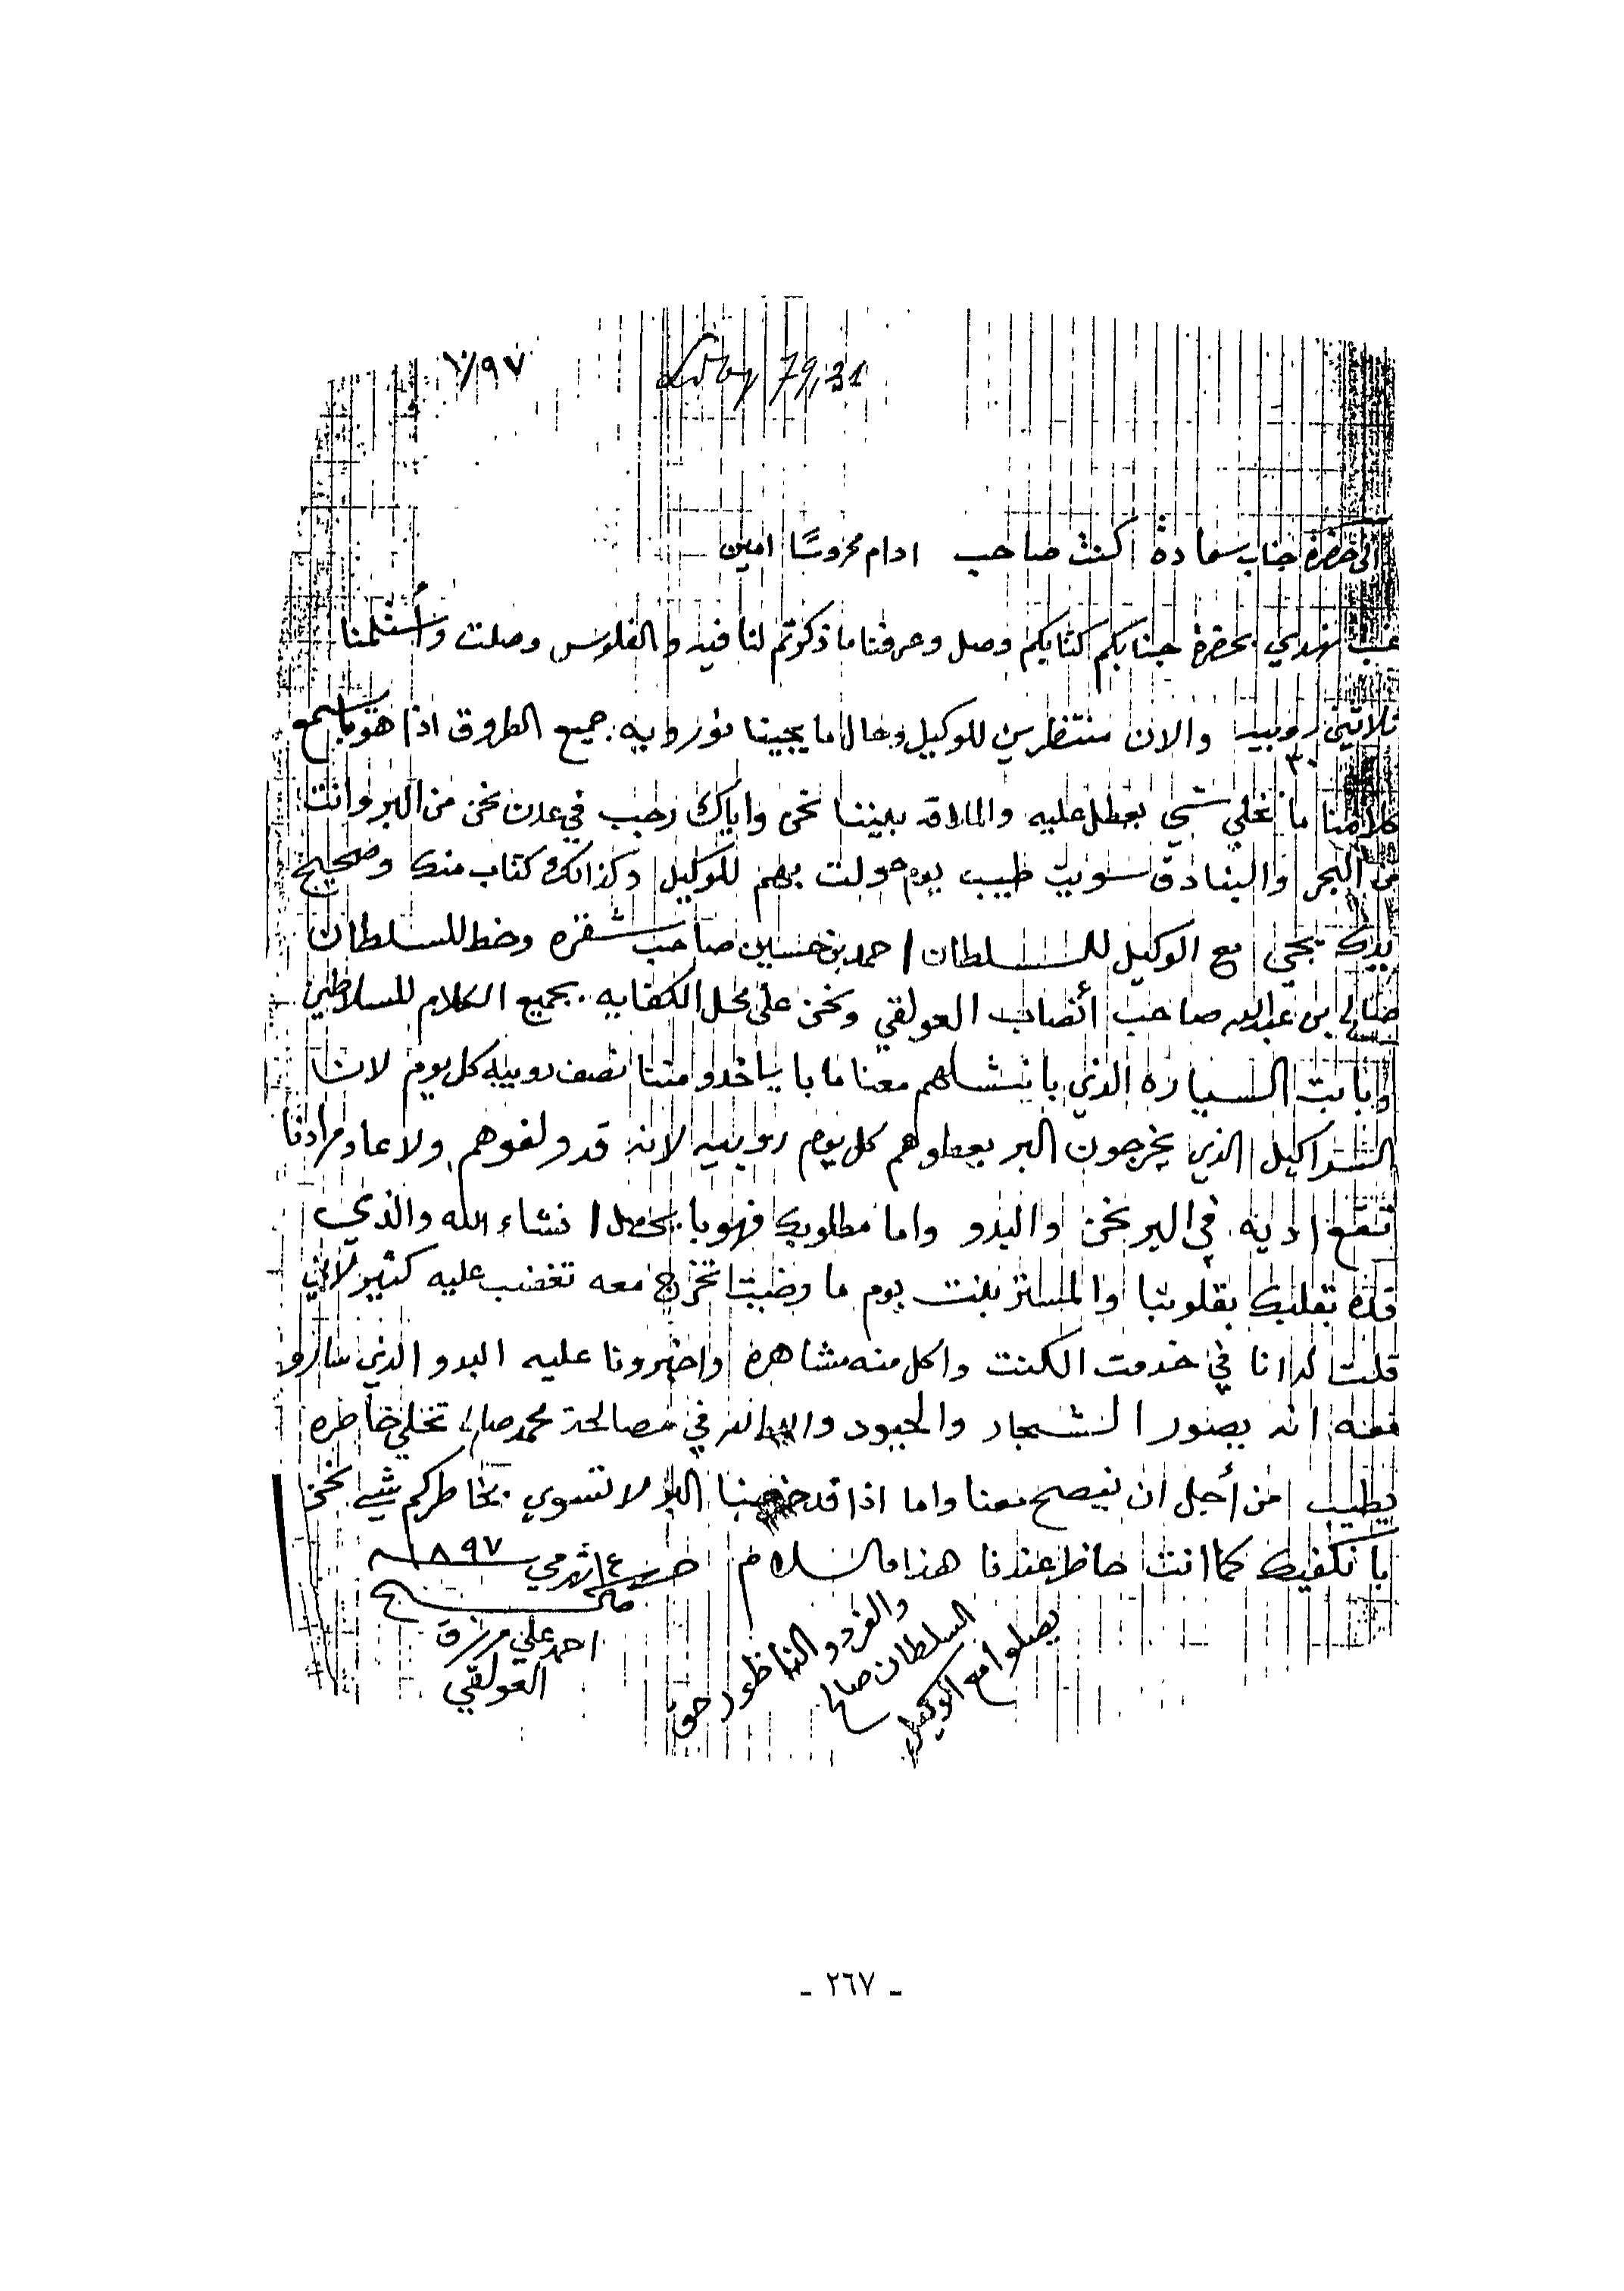 ١٨٩٧
79,31
الى حضرة جناب سعادة اكنت صاحب ادام محروسًا امين
غب نهدي بحضرة جنابكم كتابكم وصل وعرفنا ما ذكرتم لنا فيه والفلوس وصلت وأستلمنا
ثلاثين روبيه والان منتظرين للوكيل وحال ما يجينا نوروبيه جميع الطروق اذا هو باسمع
٣٠
كلامنا ما نخلي شي بعطل عليه والملاقه بيننا نحن واياك رجب في عدن نحن من البر وانت
من البحر والبنادق سويت طيب يوم حولت بهم للوكيل وكذالك كتاب منك وصحيح
بيدك يجي مع الوكيل للسلطان احمد بن حسين صاحب شقره وخط للسلطان
صالح بن عبدالله صاحب أنصاب العولقي ونحن على محل الكفايه بجميع الكلام للسلاطين
وبابت السياره الذي با نشلهم معنا ما با ياخدو مننا نصف روبيه كل يوم لان
الشراكيل الذي يخرجون البر بعطوهم كل يوم روبيه لانه قد ولفوهم ولا عاد مرادنا
تقع اديه في البر نحن والبدو واما مطلوبك فهو با يحصل انشاء الله والذي
قده بقلبك بقلوبنا والمستر بنت يوم ما رضيت اتخرج معه تغضب عليه كثير لاني
قلت له انا في خدمت الكنت واكل منه مشاهره واخبرونا عليه البدو الذي سارو
معه انه يصنور الشجار والحيود وانه في مصالحة محمد صالح تخلي خاطره
يطيب من أجل ان نيصح معنا واما اذا قد البر لا تسوي بخاطركم شي نحن
با نكفيك كما انت حاظر عندنا هذا والسلام حرر ١٤ شهر مي ١٨٩٧
صحيح
احمد علي مرزق
العولقي
والفرد والناظور حق
السلطان صالح
يصلوا مع الوكيل
ـ ٢٦٧ ـ